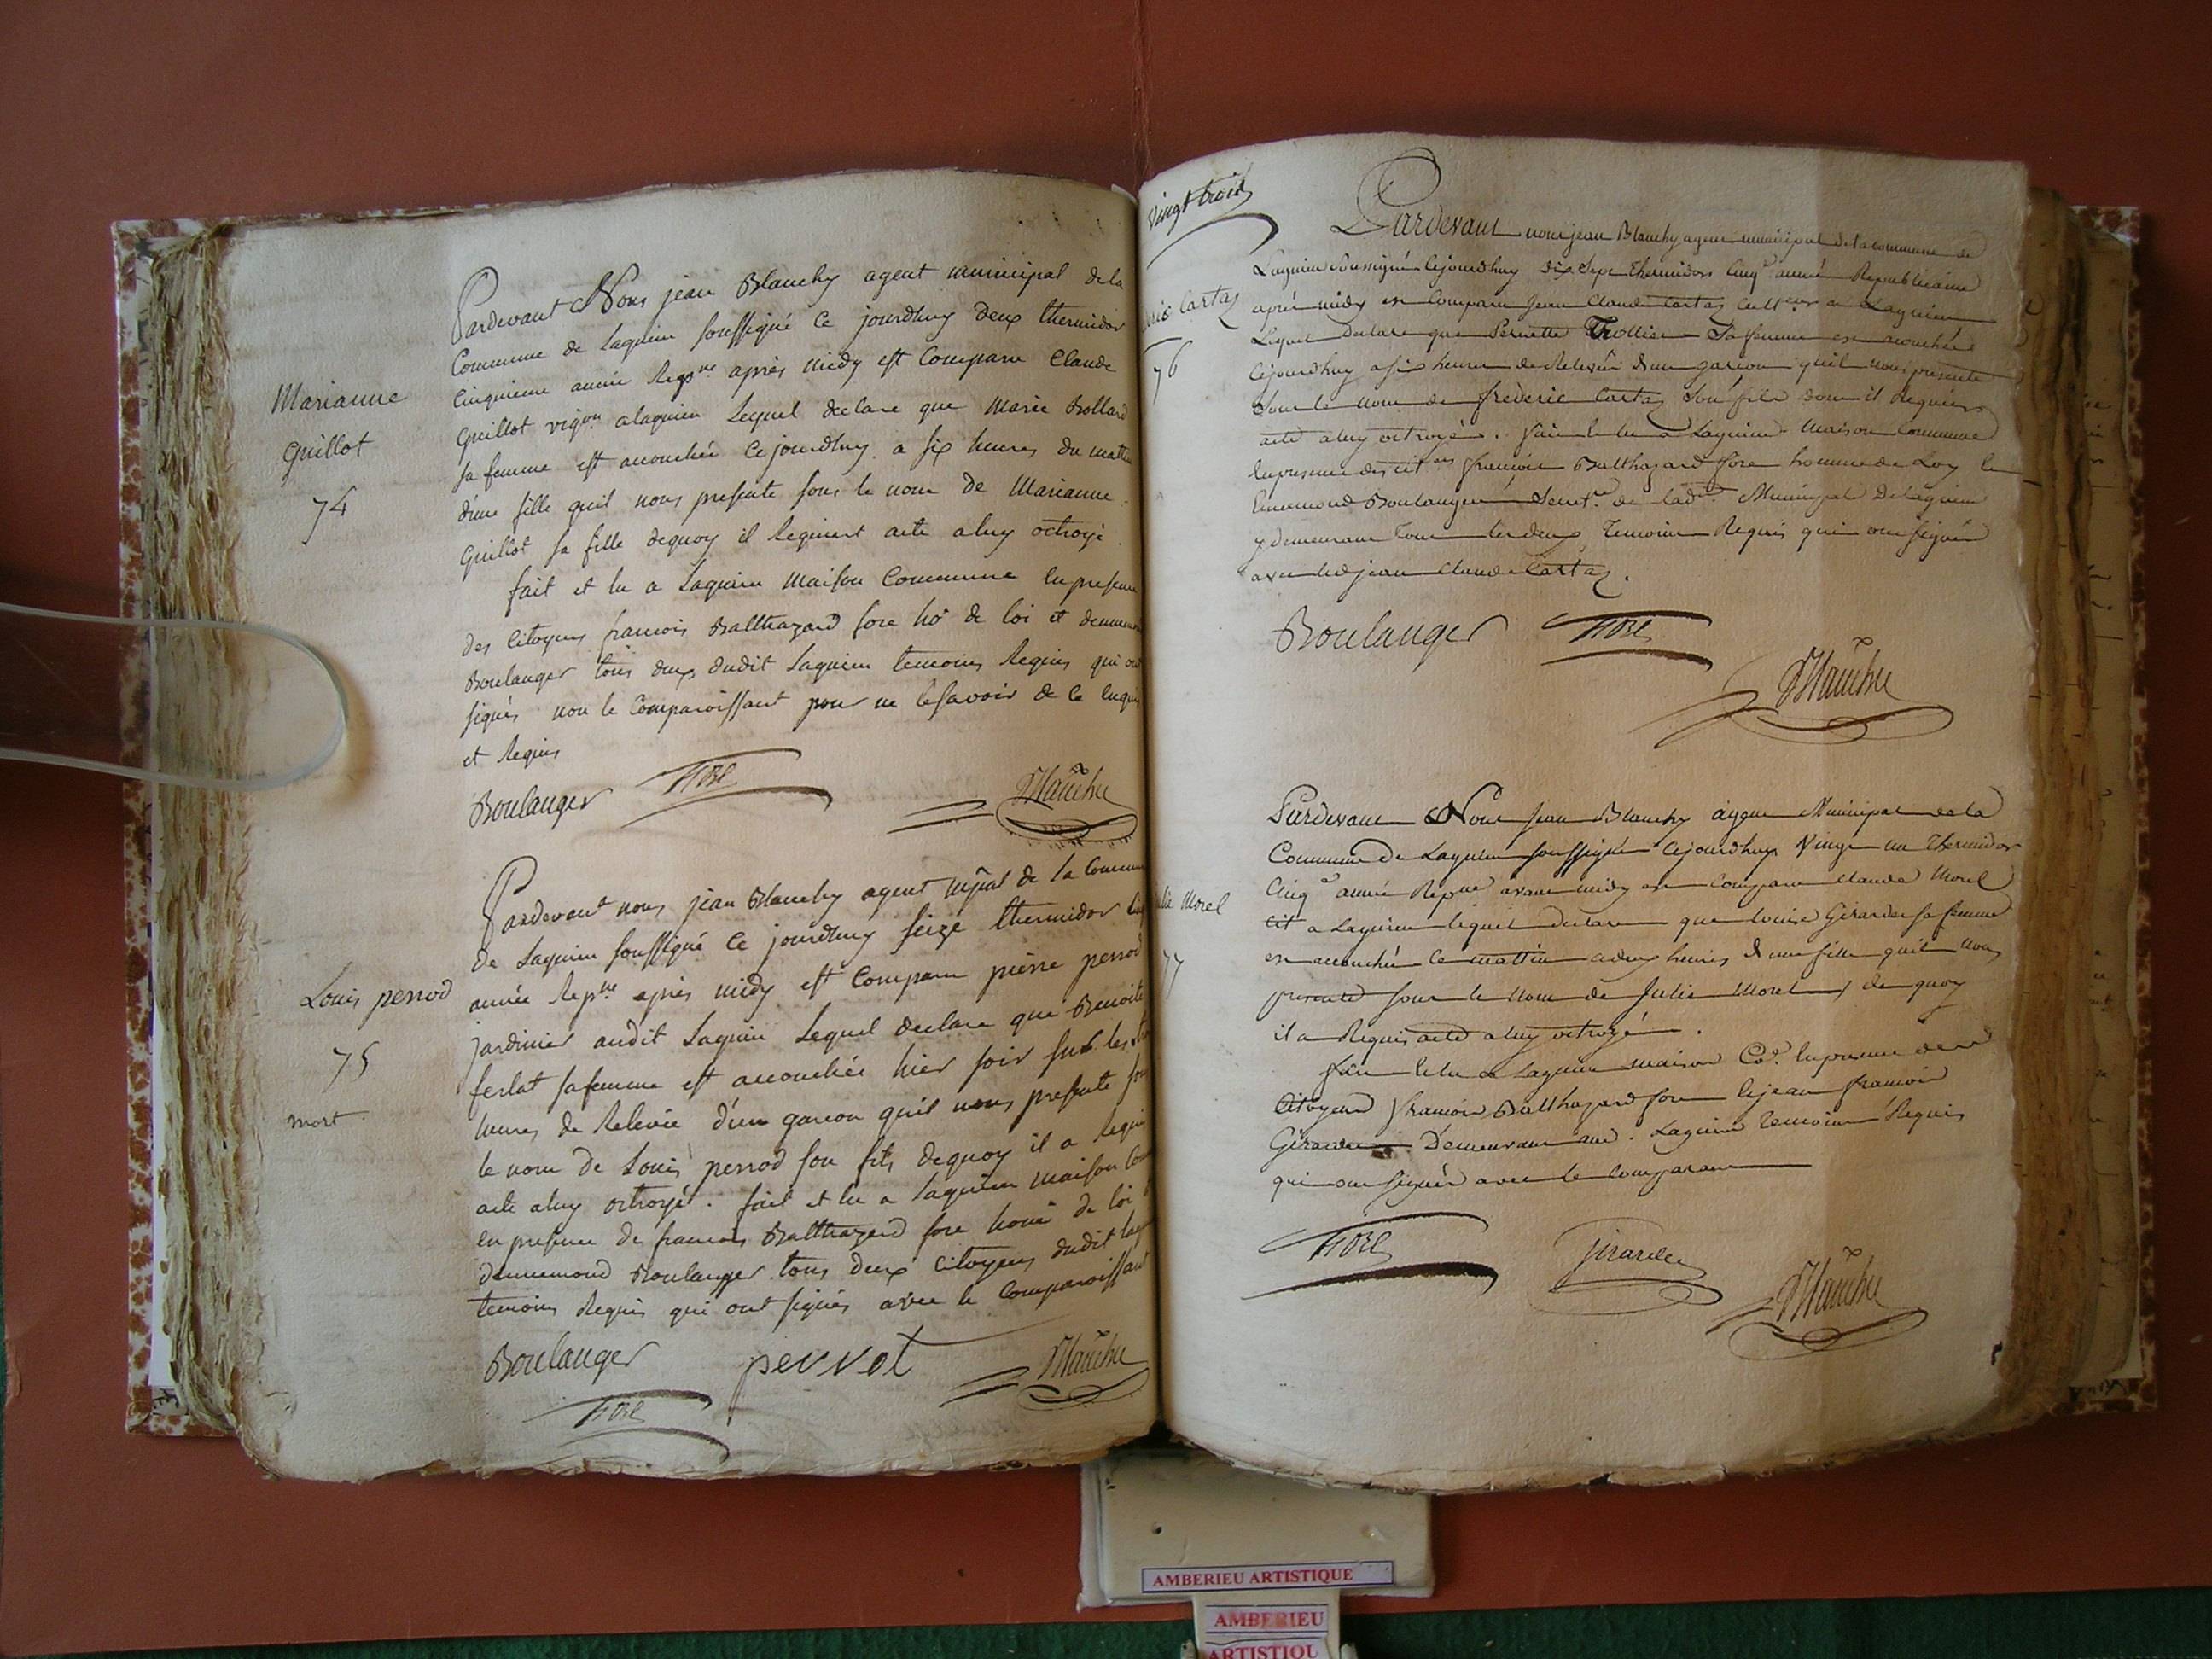 Marianne
Guillot
74
Pardevant Nous jean Blanchy agent municipal dela
Commune de Lagnieu soussigné Ce jourdhuy deux thermidor
Cinquieme année Repne après midy est Comparu Claude
Guillot vigon alagnieu Lequel declare que Marie Rollard
sa femme est accouchée Cejourdhuy a six heures du mattin
d'une fille quil nous presente sous le nom de Marianne
Guillot sa fille dequoy il Requiert acte aluy octroyé
fait et lu a Lagnieu Maison Commune en presence
des Citoyens francois Balthazard fore ho de loi et dennemond
Boulanger tous deux dudit Lagnieu temoins Requis qui ont
signés non le Comparoissant pour ne le savoir de ce enquis
et Requis
Boulanger fore Blanchy
Louis perrod
75
mort
Pardevant nous jean Blanchy agent mpal de la Commune
de Lagnieu soussigné Ce jourdhuy seize thermidor Cinq
année Repne après midy est Comparu pierre perrod
jardinier audit Lagnieu Lequel declare que Benoite
ferlat safemme est accouchée hier soir sur les
heures de Relevée d'un garcon quil nous presente sous
le nom de Louis perrod son fils dequoy il a Requis
acte aluy octroyé. fait et lu a Lagnieu Maison Com
en presence de francois Balthazard fore home de loi
dennemond Boulanger tous deux Citoyens dudit lagnieu
temoins Requis qui ont signés avec le Comparoissant
Boulanger perrot Blanchy
fore
Vingt trois
Cartaz
76
Pardevant nous jean Blanchy agent municipal dela commune de
Lagnieu Soussigné Cejourdhuy dix Sept Thermidor Cinqe année Republicaine
après midy est Comparu Jean Claude Cartaz Culteur a Lagnieu
Lequel declare que Pernette Trollier Sa femme est accouchée
Cejourdhuy a six heures de Relevée d'un garcon quil nous presente
Sous le nom de frederic Cartaz Son fils dont il Requiert
acte a luy octroyé. fait et lu a Lagnieu Maison Commune
En presence des citens francois Balthazard fore homme de Loy et
Ennemond Boulanger Secretre de lade Municipale De Lagnieu
y demeurant Tous les deux Temoins Requis qui ont signés
avec led jean Claude Cartaz.
Boulanger fore
Blanchy
Julie Morel
77
Pardevant Nous Jean Blanchy agent Municipal de la
Commune De Lagnieu soussigné Cejourdhuy Vingt un Thermidor
Cinqe année Repne avant midy est Comparu Claude Morel
cit a Lagnieu lequel declare que louise Girardet sa femme
est accouchée Ce mattin a deux heures d'une fille quil nous
presente sous le nom de Julie Morel de quoy
il a Requis acte aluy octroyé.
fait et lu a Lagnieu maison Coe. En presence des
Citoyens francois Balthazard fore et jean francois
Girardet Demeurant aud. Lagnieu Temoins Requis
qui ont signés avec le Comparant
fore Girardet Blanchy
AMBERIEU ARTISTIQUE
AMBERIEU
ARTISTIQU